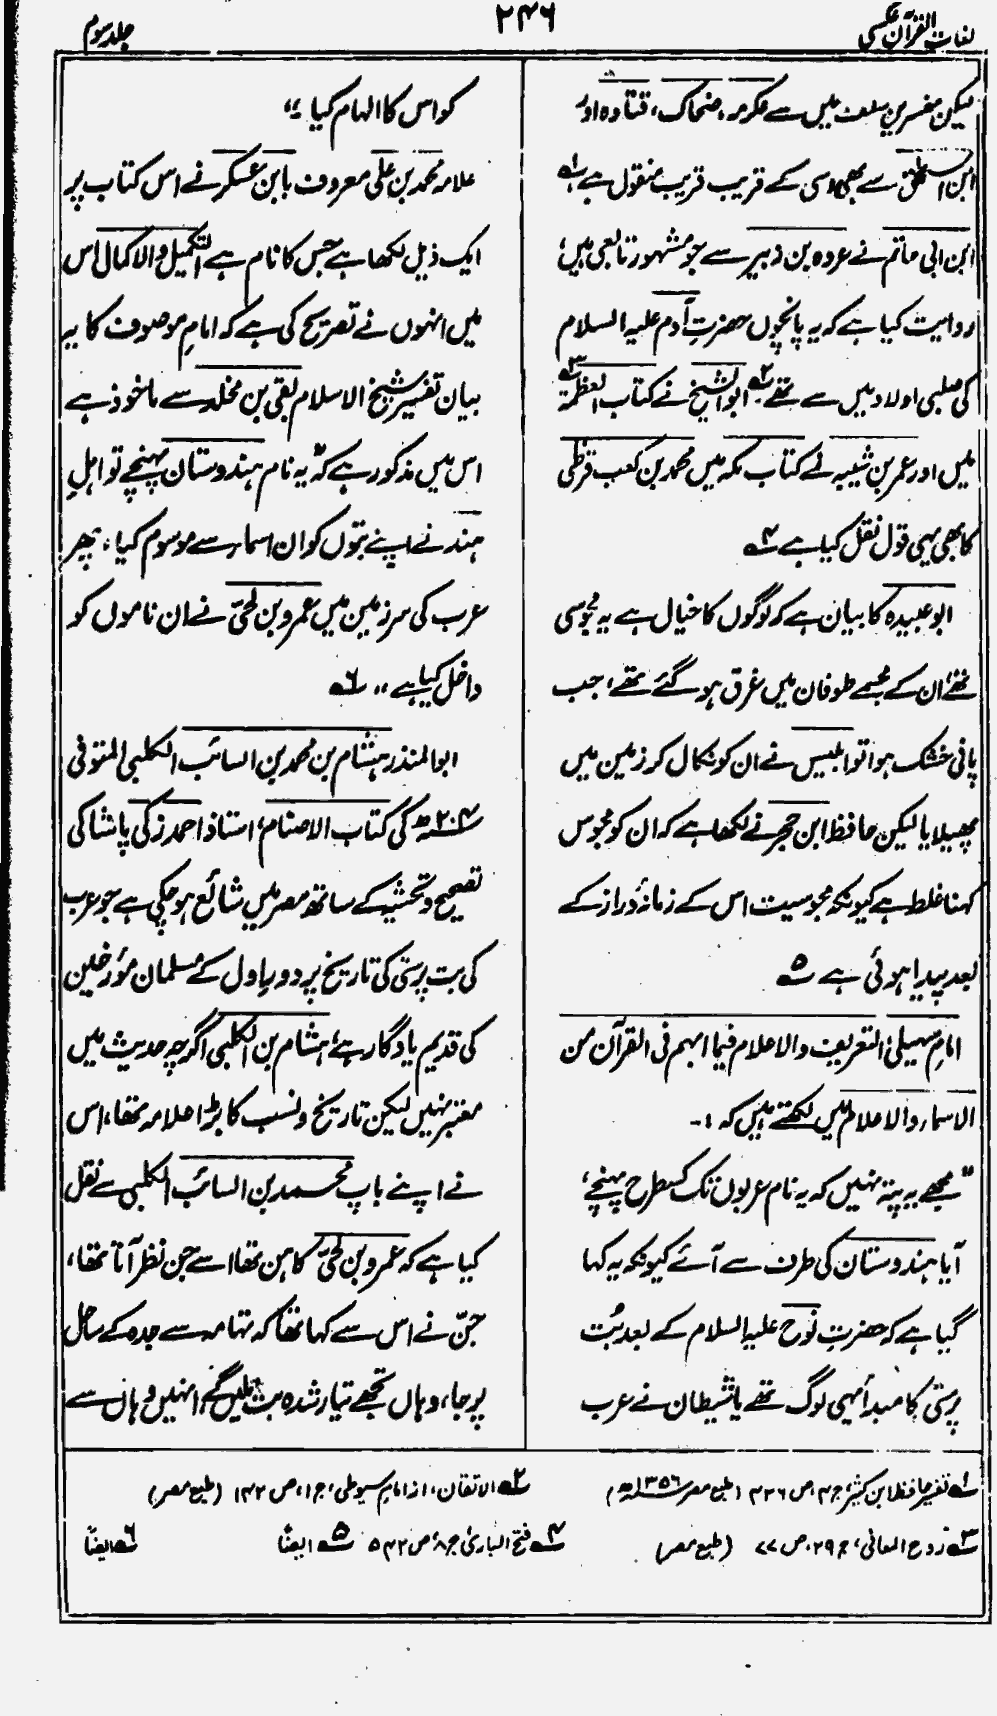 لغات القرآن عکسی
۲۴۶
جلد سوم
لیکن مفسرین سلف میں سے عکرمہ، ضحاک، قتادہ اور
ابن اسحٰق سے بھی اسی کے قریب قریب منقول ہے ۱؎
ابن ابی حاتم نے عروہ بن زبیر سے جو مشہور تابعی ہیں؛
روایت کیا ہے کہ یہ پانچوں حضرتِ آدم علیہ السلام
کی صلبی اولاد میں سے تھے ۲؎ ابو الشیخ نے کتاب العظمۃ ۳؎
میں اور عمر بن شیبہ نے کتاب مکہ میں محمد بن کعب قرظی
کا بھی یہی قول نقل کیا ہے ۴؎
ابو عبیدہ کا بیان ہے کہ لوگوں کا خیال ہے یہ مجوسی
تھے، ان کے مجسمے طوفان میں غرق ہو گئے تھے، جب
پانی خشک ہوا تو ابلیس نے ان کو نکال کر زمین میں
پھیلایا لیکن حافظ ابن حجر نے لکھا ہے کہ ان کو مجوس
کہنا غلط ہے کیونکہ مجوسیت اس کے زمانۂ دراز کے
بعد پیدا ہوئی ہے ۵؎
امام سہیلی؛ التعریف والاعلام فیما ابہم فی القرآن من
الاسماء والاعلام میں لکھتے ہیں کہ :-
” مجھے یہ پتہ نہیں کہ یہ نام عربوں تک کسطرح پہنچے،
آیا ہندوستان کی طرف سے آئے کیونکہ یہ کہا
گیا ہے کہ حضرتِ نوح علیہ السلام کے بعد بُت
پرستی کا مبدأ یہی لوگ تھے یا شیطان نے عرب
کو اس کا الہام کیا ۔“
علامہ محمد بن علی معروف بابن عسکر نے اس کتاب پر
ایک ذیل لکھا ہے جس کا نام ہے التکمیل والاکمال اس
میں انہوں نے تصریح کی ہے کہ امامِ موصوف کا یہ
بیان تفسیر شیخ الاسلام بقی بن مخلد سے ماخوذ ہے
اس میں مذکور ہے کہ ”یہ نام ہندوستان پہنچے تو اہلِ
ہند نے اپنے بتوں کو ان اسماء سے موسوم کیا، پھر
عرب کی سرزمین میں عمرو بن لحیّ نے ان ناموں کو
داخل کیا ہے “ ۶؎
ابو المنذر ہشام بن محمد بن السائب الکلبی المتوفی
۲۰۴ھ کی کتاب الاصنام؛ استاذ احمد زکی پاشا کی
تصحیح و تحشیہ کے ساتھ مصر میں شائع ہو چکی ہے جو عرب
کی بت پرستی کی تاریخ پر دورِ اول کے مسلمان مؤرخین
کی قدیم یادگار ہے؛ ہشام بن الکلبی اگرچہ حدیث میں
معتبر نہیں لیکن تاریخ و نسب کا بڑا علامہ تھا، اس
نے اپنے باپ محمد بن السائب الکلبی سے نقل
کیا ہے کہ عمرو بن لحیّ کاہن تھا اسے جن نظر آتا تھا،
جنّ نے اس سے کہا تھا کہ تہامہ سے جدہ کے ساحل
پر جا، وہاں تجھے تیار شدہ بت ملیں گے، انہیں وہاں سے
۱؎ تفسیر حافظ ابن کثیر؛ ج ۴، ص ۴۲۶ (طبع مصر ۱۳۵۶ھ)
۲؎ الاتقان، از امام سیوطی، ج ۱، ص ۱۴۲ (طبع مصر)
۳؎ روح المعانی، ج ۲۹، ص ۷۷ (طبع مصر)
۴؎ فتح الباری؛ ج ۸، ص ۵۴۲
۵؎ ایضًا
۶؎ ایضًا